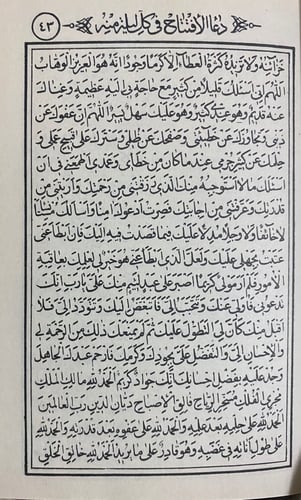 ٤٣ دعاء الافتتاح في كل ليلة منه
خزائنه ولا تزيده كثرة العطاء الا كرما وجودا انه هو العزيز الوهاب
اللهم اني اسئلك قليلا من كثير مع حاجة بي اليه عظيمة وغناك
عنه قديم وهو عندي كثير وهو عليك سهل يسير اللهم ان عفوك عن
ذنبي وتجاوزك عن خطيئتي وصفحك عن ظلمي وسترك على قبيح عملي و
حلمك عن كثير جرمي عند ما كان من خطاي وعمدي اطمعني في ان
اسئلك ما لا استوجبه منك الذي رزقتني من رحمتك واريتني من
قدرتك وعرفتني من اجابتك فصرت ادعوك امنا واسالك مستانسا
لا خائفا ولا وجلا مدلا عليك فيما قصدت فيه اليك فان ابطا عني
عتبت بجهلي عليك ولعل الذي ابطا عني هو خير لي لعلمك بعاقبة
الامور فلم ار مولى كريما اصبر على عبد لئيم منك علي يا رب انك
تدعوني فاولي عنك وتتحبب الي فاتبغض اليك وتتودد الي فلا
اقبل منك كان لي التطول عليك ثم لم يمنعك ذلك من الرحمة لي
والاحسان الي والتفضل علي بجودك وكرمك فارحم عبدك الجاهل
وجد عليه بفضل احسانك انك جواد كريم الحمد لله مالك الملك
مجري الفلك مسخر الرياح فالق الاصباح ديان الدين رب العالمين
الحمد لله على حلمه بعد علمه والحمد لله على عفوه بعد قدرته والحمد لله
على طول اناته في غضبه وهو قادر على ما يريد الحمد لله خالق الخلق